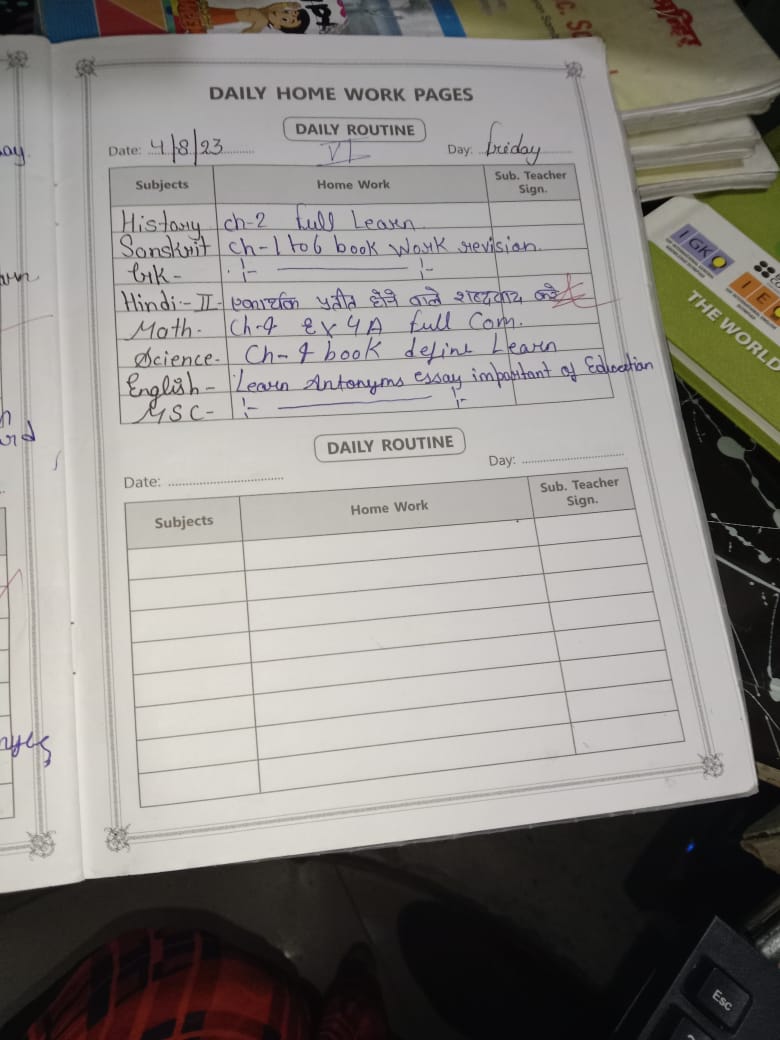 DAILY HOME WORK PAGES
DAILY ROUTINE
Date: 4/8/23 VI Day: Friday
Subjects Home Work Sub. Teacher Sign.
History ch-2 full Learn
Sanskrit ch-1 to 6 book work revision.
Gk- :- :-
Hindi:-II- एकार्थक प्रतीत होने वाले शब्द याद करे
Math- Ch-4 Ex 4A full Com.
Science- Ch-4 book define Learn
English- Learn Antonyms essay impoatant of Education
MSC- :- :-
DAILY ROUTINE
Date: Day:
Subjects Home Work Sub. Teacher Sign.
IGK
IE
THE WORLD
Esc